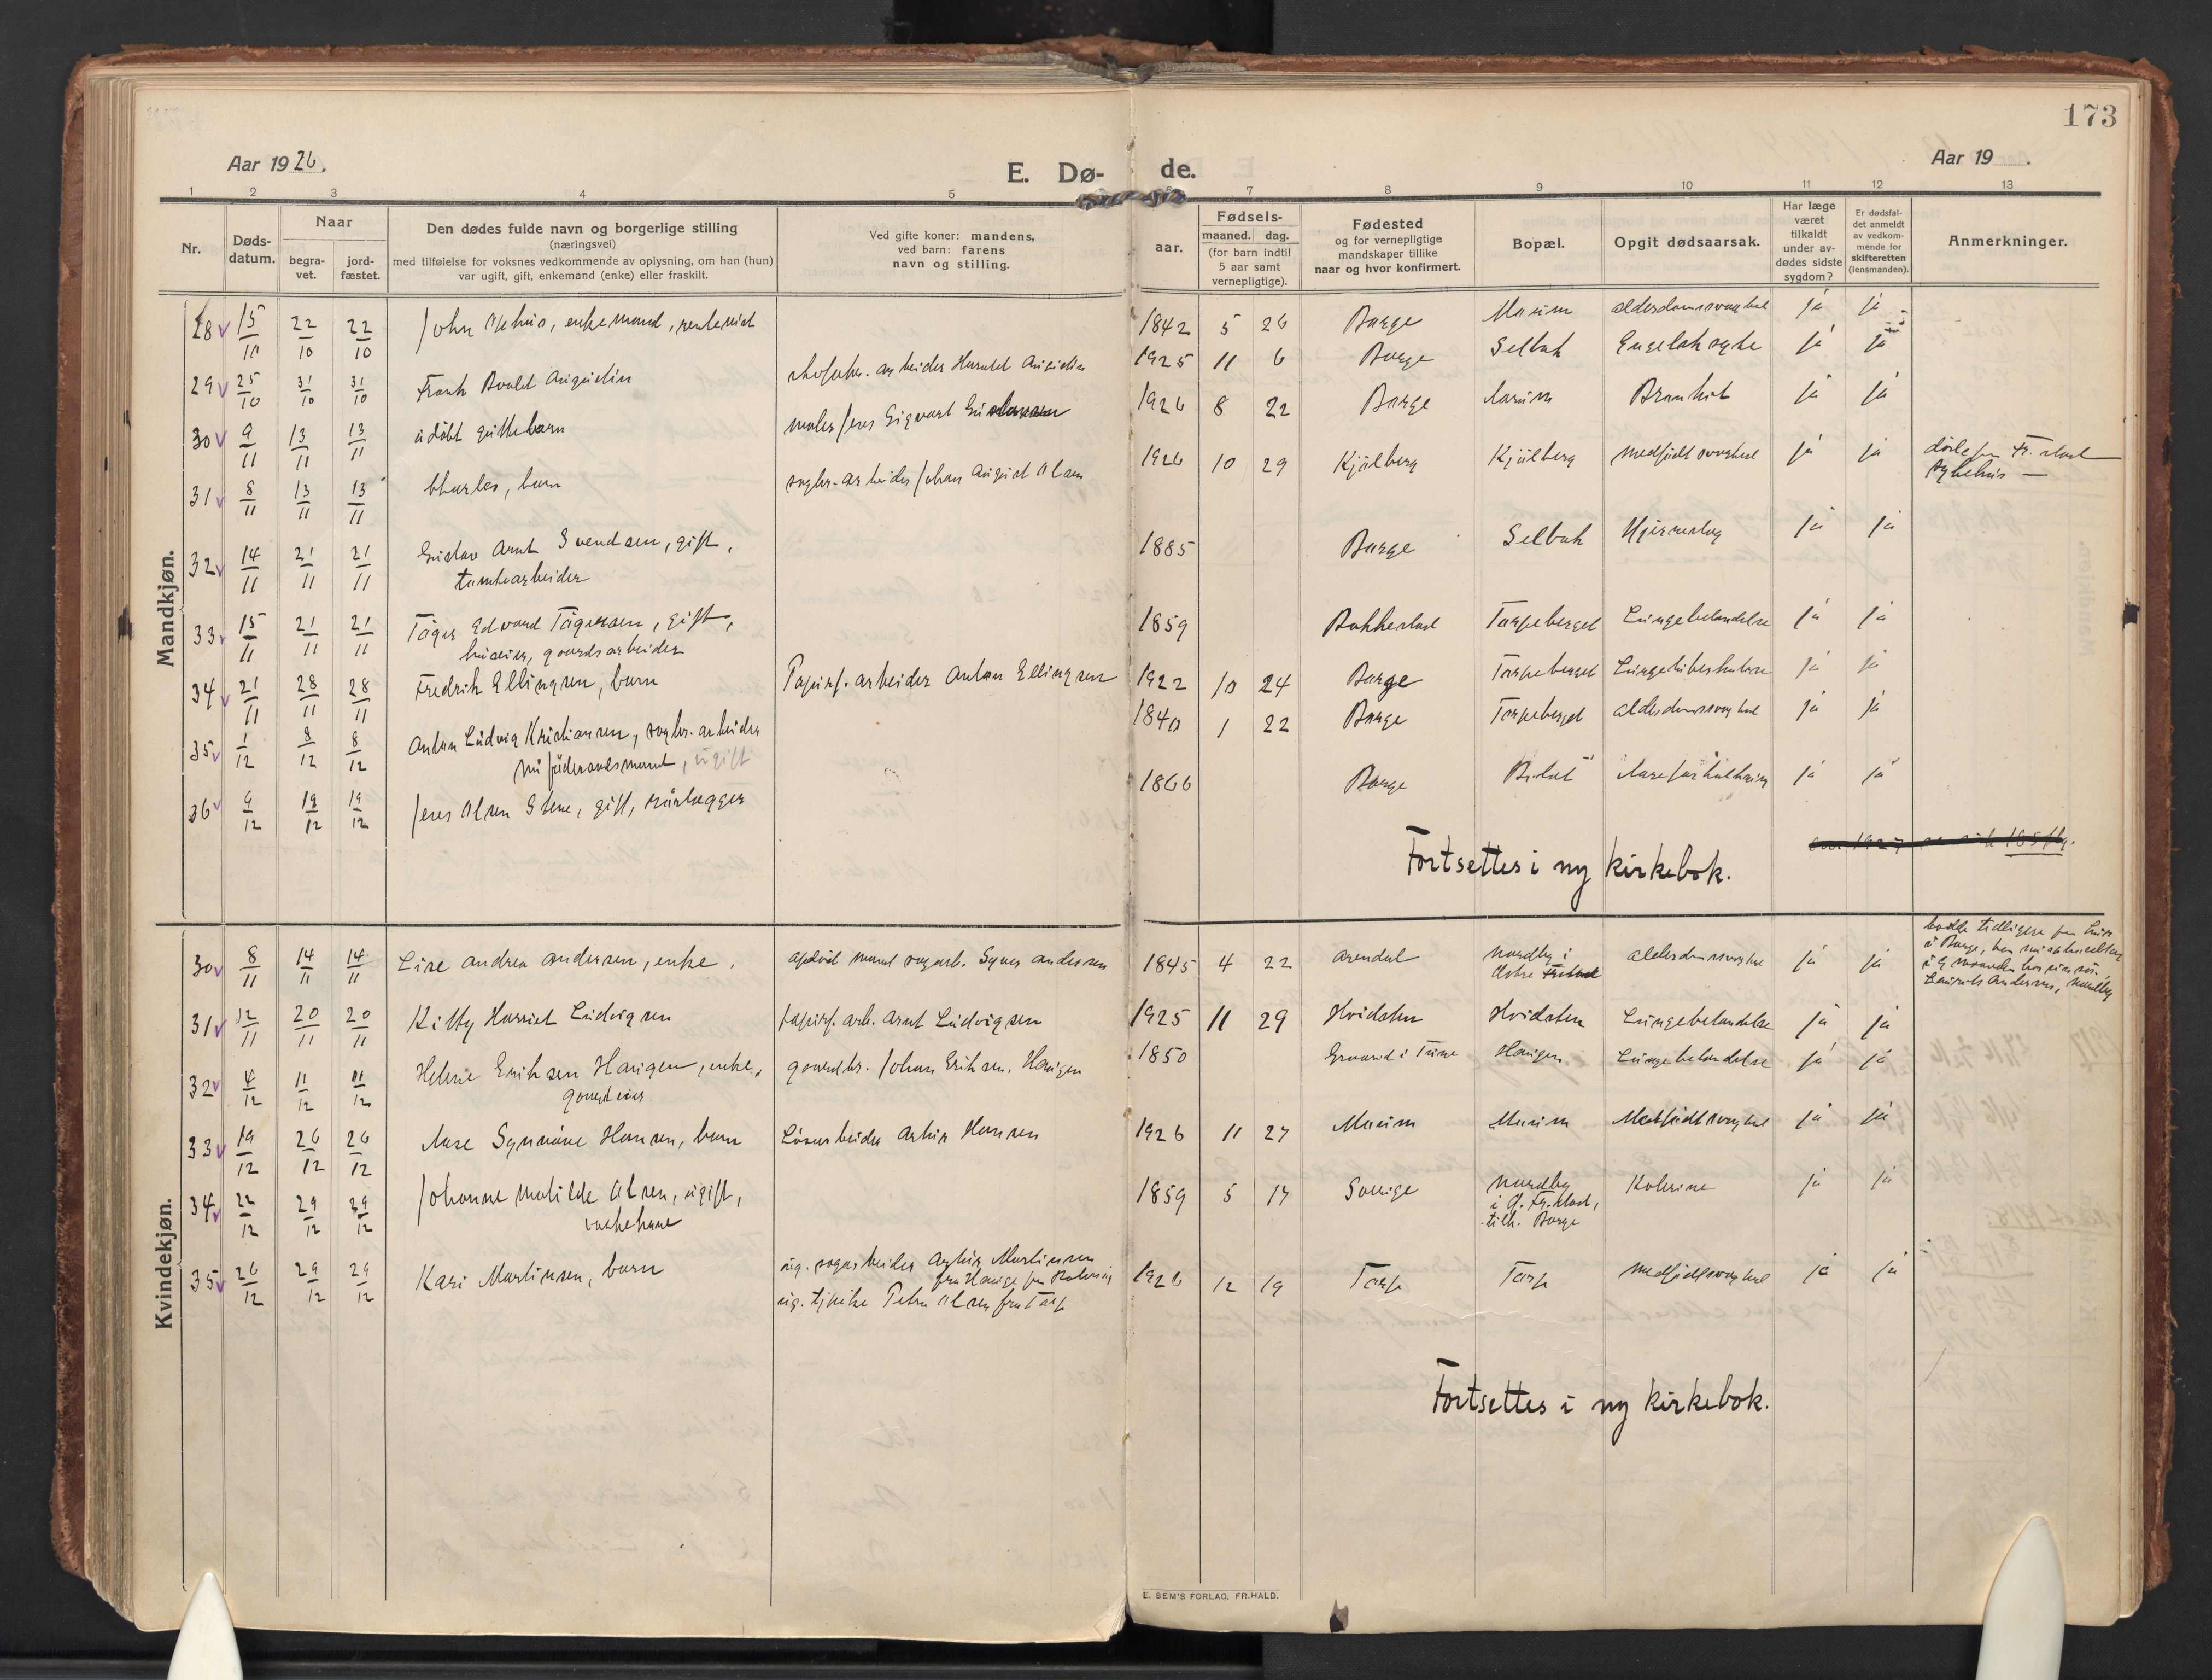 173
Aar 1926.
E. Dø-
de.
Aar 19 .
1 2 3 4 5 6 7 8 9 10 11 12 13
Nr.
Døds-
datum.
Naar
begra-
vet.
jord-
fæstet.
Den dødes fulde navn og borgerlige stilling
(næringsvei)
med tilføielse for voksnes vedkommende av oplysning, om han (hun)
var ugift, gift, enkemand (enke) eller fraskilt.
Ved gifte koner: mandens,
ved barn: farens
navn og stilling.
aar.
Fødsels-
maaned. dag.
(for barn indtil
5 aar samt
vernepligtige).
Fødested
og for vernepligtige
mandskaper tillike
naar og hvor konfirmert.
Bopæl.
Opgit dødsaarsak.
Har læge
været
tilkaldt
under av-
dødes sidste
sygdom?
Er dødsfal-
det anmeldt
av vedkom-
mende for
skifteretten
(lensmanden).
Anmerkninger.
Mandkjøn.
28 15/10 22/10 22/10 John enkemand, 1842 5 26 Borge Moum alderdomssvaghet ja ja
29 25/10 31/10 31/10 Frank arbeider Harald 1925 11 6 Borge Selbak Engelsk syke ja ja
30 9/11 13/11 13/11 udøbt guttebarn maler Jens Sigvart 1926 8 22 Borge ja ja
31 8/11 13/11 13/11 Charles, barn arbeider Johan August Olsen 1926 10 29 Kjølberg Kjølberg medfødt svaghet ja ja døde paa Fr.stad
sykehus —
32 14/11 21/11 21/11 Gustav Arnt Svendsen, gift, 1885 Borge Selbak Hjerneslag ja ja
tomtearbeider
33 15/11 21/11 21/11 Edvard gift, 1859 Bakkestad Torpeberget Lungebetændelse ja ja
huseier, gaardsarbeider
34 21/11 28/11 28/11 Fredrik Ellingsen, barn Papirf. arbeider Anton Ellingsen 1922 10 24 Borge Torpeberget ja ja
35 1/12 8/12 8/12 Anton Ludvig Kristiansen, sagbr. arbeider 1840 1 22 Borge Torpeberget alderdomssvaghet ja ja
nu føderaadsmand, ugift
36 9/12 19/12 19/12 Jens Olsen gift, rørlægger 1866 Borge ja ja
Fortsettes i ny kirkebok.
Kvindekjøn.
30 8/11 14/11 14/11 Lise Andrea Andersen, enke. 1845 4 22 Arendal Nordby i alderdomssvaghet ja ja bodde tidligere paa
i Borge,
31 12/11 20/11 20/11 Kitty Harriet Ludvigsen papirf. arb. Arnt Ludvigsen 1925 11 29 Hvidsten Hvidsten Lungebetændelse ja ja
32 4/12 11/12 11/12 Helene Eriksen Haugen, enke, gaardbr. Johan Eriksen, Haugen 1850 i Tune Haugen Lungebetændelse ja ja
33 19/12 26/12 26/12 Aase Synnøve Hansen, barn Løsarbeider Hansen 1926 11 27 Moum Moum Medfødt svaghet ja ja
34 22/12 29/12 29/12 Johanne Matilde Olsen, ugift, 1859 5 17 Sverige Nordby ja ja
vaskekone i Gl. Fr.stad,
tilh. Borge
35 26/12 29/12 29/12 Kari Martinsen, barn ug. Martinsen 1926 12 19 Torp Torp medfødt svaghet ja ja
ug. tjpike Petra Olsen fra Torp
Fortsettes i ny kirkebok.
E. SEM'S FORLAG, FR.HALD.